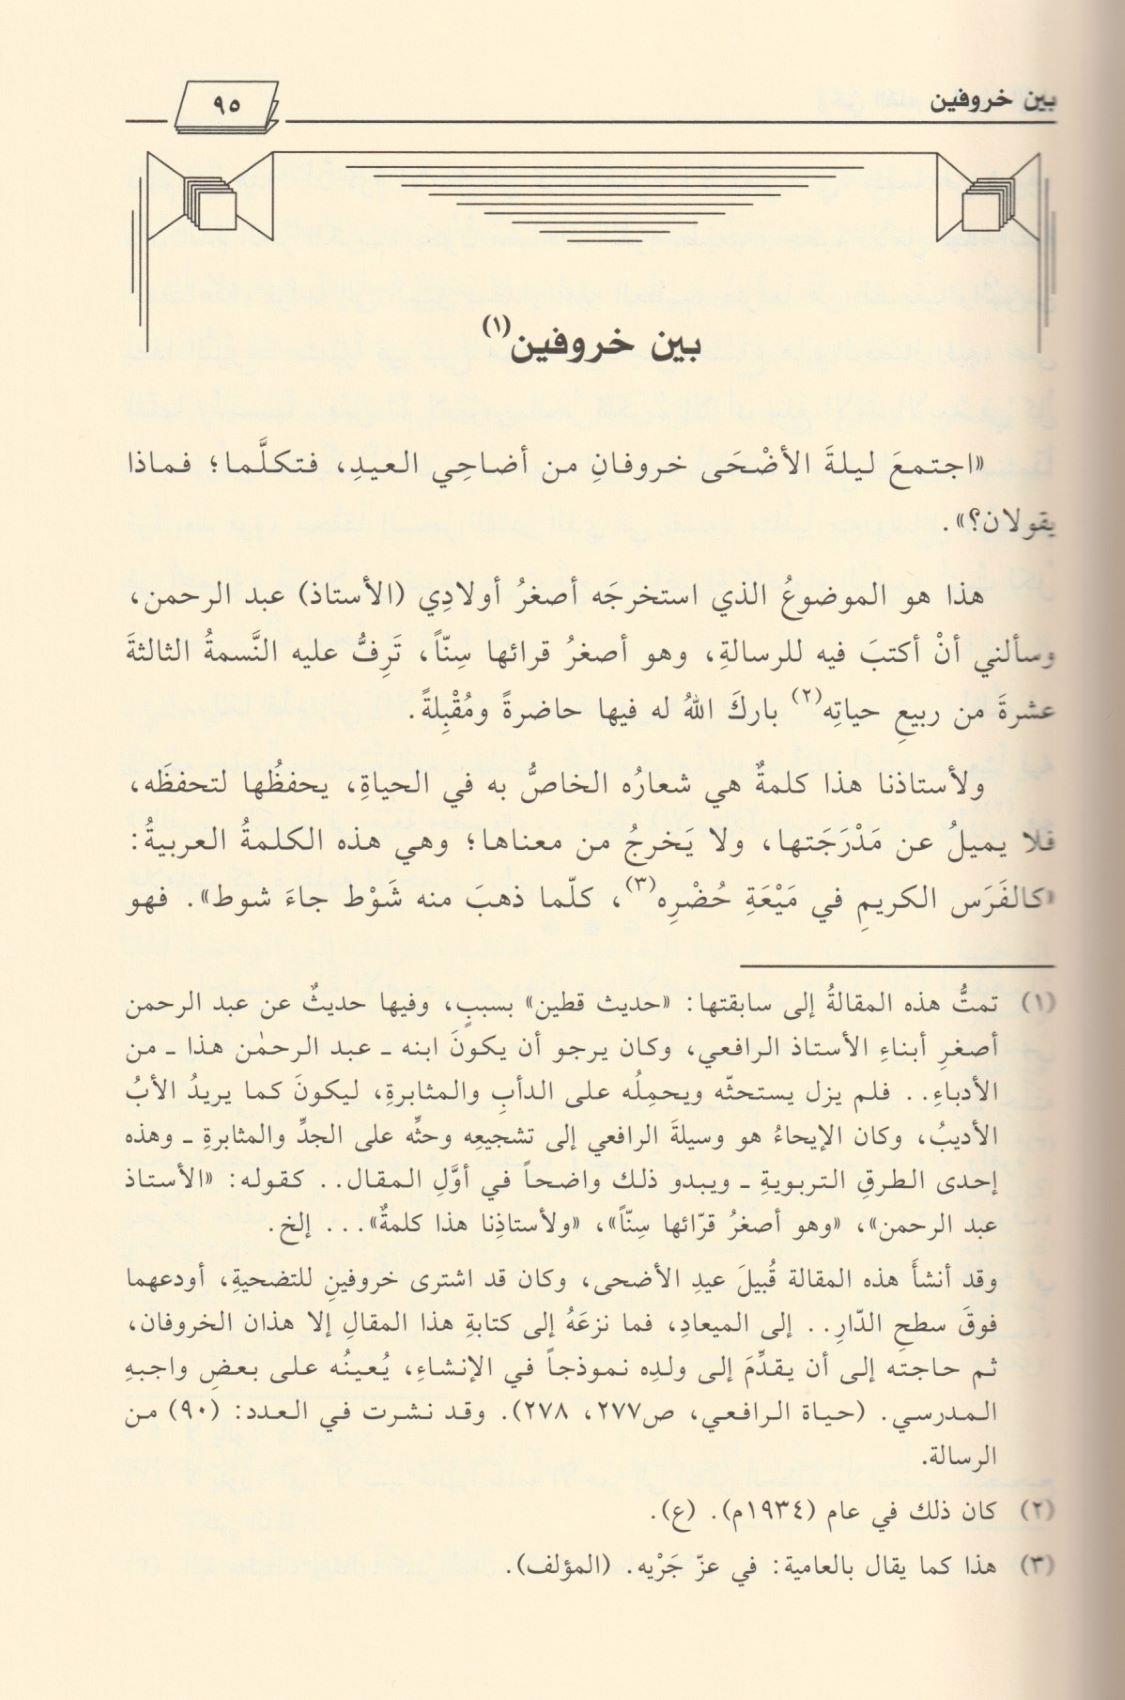 بين خروفين
٩٥
بين خروفين(١)
«اجتمعَ ليلةَ الأضْحَى خروفانِ من أضاحِي العيدِ، فتكلَّما؛ فماذا
يقولان؟».
هذا هو الموضوعُ الذي استخرجَه أصغرُ أولادِي (الأستاذ) عبد الرحمن،
وسألني أنْ أكتبَ فيه للرسالةِ، وهو أصغرُ قرائها سِنّاً، تَرِفُّ عليه النَّسمةُ الثالثةَ
عشرةَ من ربيعِ حياتِه(٢) باركَ اللهُ له فيها حاضرةً ومُقْبِلةً.
ولأستاذنا هذا كلمةٌ هي شعارُه الخاصُّ به في الحياةِ، يحفظُها لتحفظَه،
فلا يميلُ عن مَدْرَجَتها، ولا يَخرجُ من معناها؛ وهي هذه الكلمةُ العربيةُ:
«كالفَرَس الكريمِ في مَيْعَةِ حُضْرِه(٣)، كلّما ذهبَ منه شَوْط جاءَ شوط». فهو
(١) تمتُّ هذه المقالةُ إلى سابقتها: «حديث قطين» بسببٍ، وفيها حديثٌ عن عبد الرحمن
أصغرِ أبناءِ الأستاذ الرافعي، وكان يرجو أن يكونَ ابنه ـ عبد الرحمٰن هذا ـ من
الأدباءِ.. فلم يزل يستحثّه ويحمِلُه على الدأبِ والمثابرةِ، ليكونَ كما يريدُ الأبُ
الأديبُ، وكان الإيحاءُ هو وسيلةَ الرافعي إلى تشجيعِه وحثِّه على الجدِّ والمثابرةِ ـ وهذه
إحدى الطرقِ التربويةِ ـ ويبدو ذلك واضحاً في أوَّلِ المقال.. كقوله: «الأستاذ
عبد الرحمن»، «وهو أصغرُ قرّائها سِنّاً»، «ولأستاذِنا هذا كلمةٌ»... إلخ.
وقد أنشأَ هذه المقالة قُبيلَ عيدِ الأضحى، وكان قد اشترى خروفينِ للتضحيةِ، أودعهما
فوقَ سطحِ الدّارِ.. إلى الميعادِ، فما نزعَهُ إلى كتابةِ هذا المقالِ إلا هذان الخروفان،
ثم حاجته إلى أن يقدِّمَ إلى ولدِه نموذجاً في الإنشاءِ، يُعينُه على بعضِ واجبهِ
المدرسي. (حياة الرافعي، ص٢٧٧، ٢٧٨). وقد نشرت في العدد: (٩٠) من
الرسالة.
(٢) كان ذلك في عام (١٩٣٤م). (ع).
(٣) هذا كما يقال بالعامية: في عزّ جَرْيه. (المؤلف).